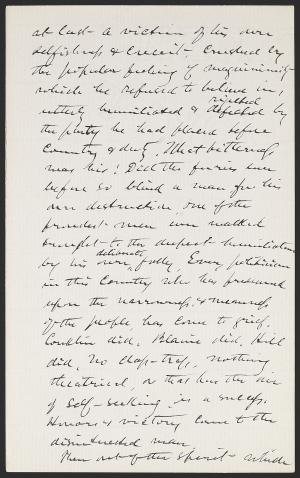 at last a victim of his own
selfishness & conceit. Crushed by
the popular feeling of magnanimity
which he refused to believe in;
utterly humiliated & rejected defeated by
the party he had placed before
Country & duty. What bitterness
was his! Did the furies ever
before so blind a man for his
own destruction, one of the
proudest men ever walked
brought to the deepest humiliation
by his own deliberate folly. Every politician
in this Country who has presumed
upon the narrowness & meanness
of the people, has come to grief.
Conklin did, Blaine did, Hill
did, No clap-trap, nothing
theatrical, or that has the air
of self-seeking is a success.
Honor & victory come to the
disinterested man.
Then out of the spirit which